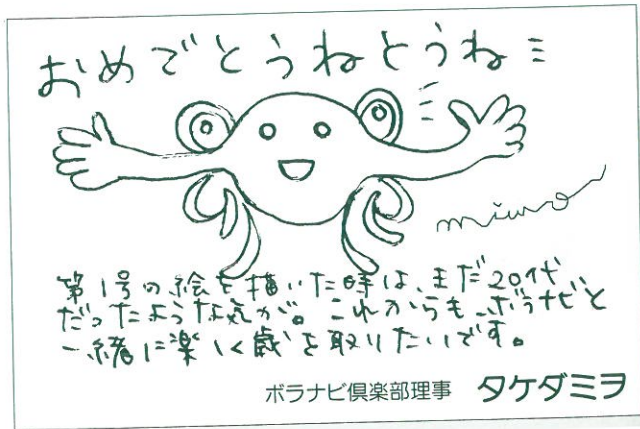 おめでとうねとうねミ
miwo
第1号の絵を描いた時は、まだ20代
だったような気が。これからも、ボラナビと
一緒に楽しく歳を取りたいです。
ボラナビ倶楽部理事 タケダミヲ